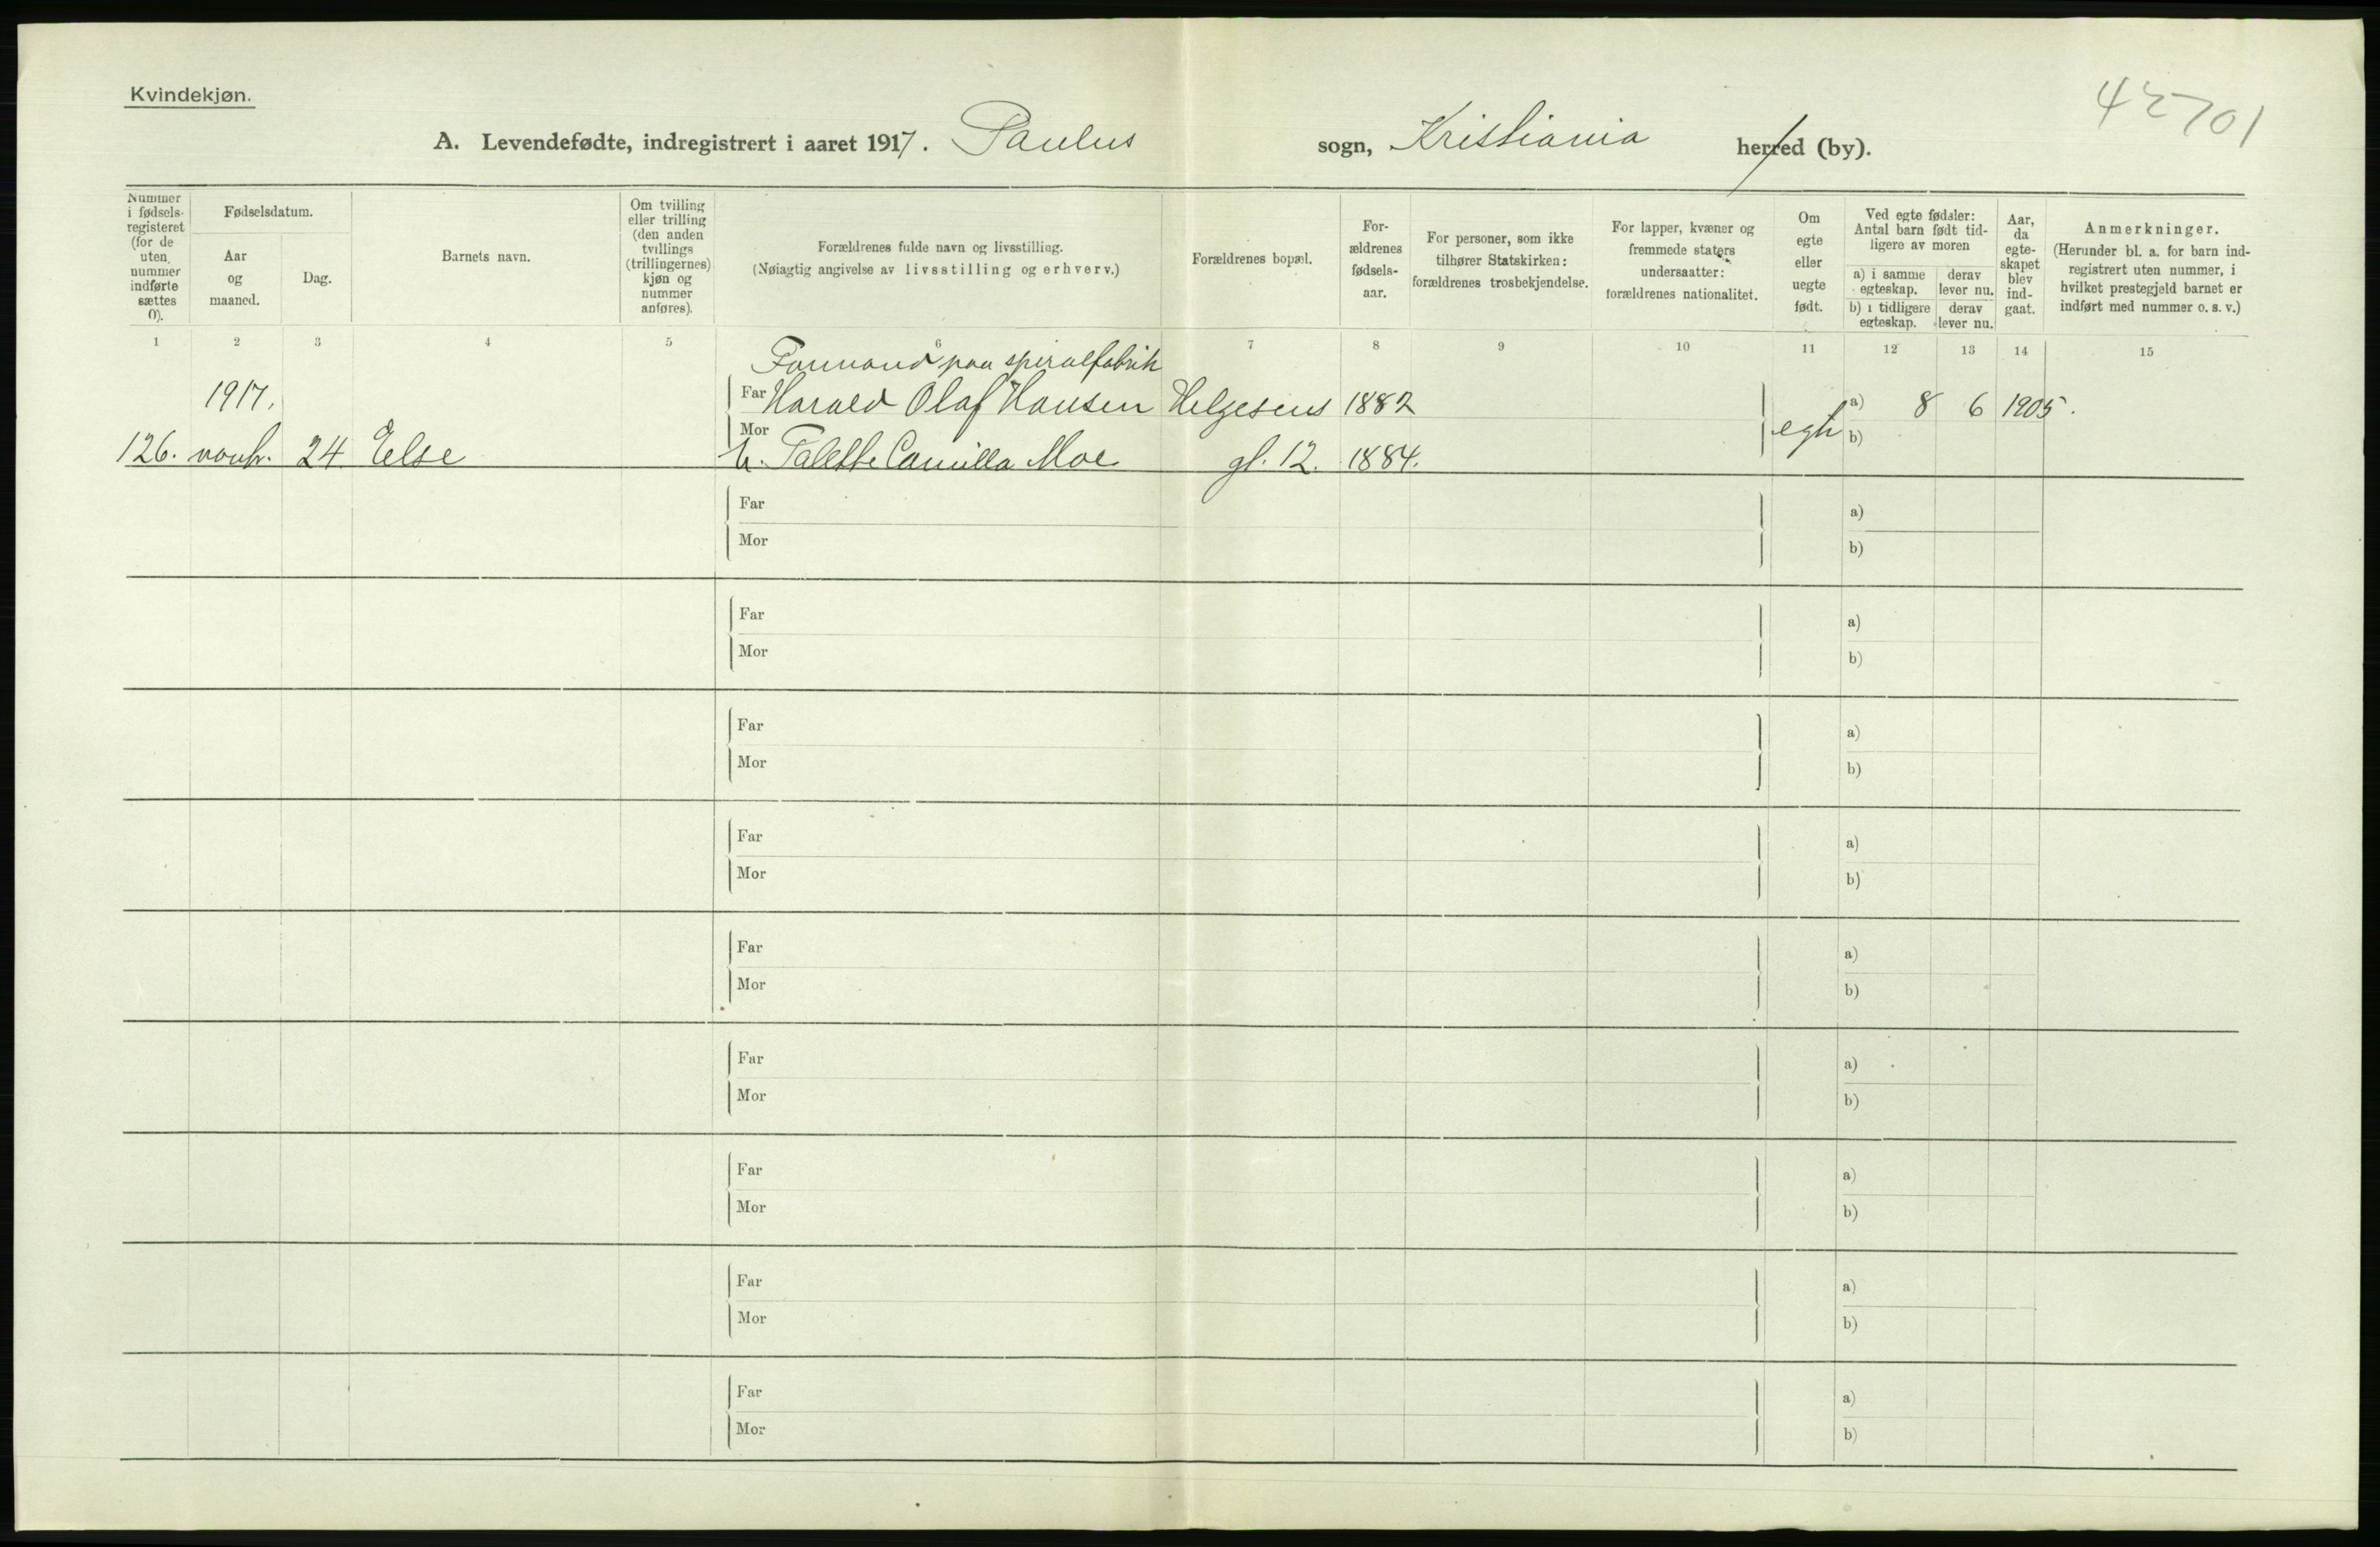 Kvindekjøn.
42701
A. Levendefødte, indregistrert i aaret 1917. Paulus sogn, Kristiania herred (by).
Nummer i fødsels- registeret (for de uten nummer indførte sættes 0).
Fødselsdatum.
Aar og maaned.
Dag.
Barnets navn.
Om tvilling eller trilling (den anden tvillings (trillingernes) kjøn og nummer anføres).
Forældrenes fulde navn og livsstilling.
(Nøiagtig angivelse av livsstilling og erhverv.)
Forældrenes bopæl.
For- ældrenes fødsels- aar.
For personer, som ikke tilhører Statskirken: forældrenes trosbekjendelse.
For lapper, kvæner og fremmede staters undersaatter: forældrenes nationalitet.
Om egte eller uegte født.
Ved egte fødsler: Antal barn født tid- ligere av moren
a) i samme egteskap.
derav lever nu.
b) i tidligere egteskap.
derav lever nu.
Aar, da egte- skapet blev ind- gaat.
Anmerkninger.
(Herunder bl. a. for barn ind- registrert uten nummer, i hvilket prestegjeld barnet er indført med nummer o. s. v.)
1 2 3 4 5 6 7 8 9 10 11 12 13 14 15
Formand paa spiralfabrik
1917. Far Harald Olaf Hansen Helgesens 1882 a) 8 6 1905.
Mor egte b)
126. novbr. 24 Else h. Talette Camilla Moe. gt. 12. 1884.
Far a)
Mor b)
Far a)
Mor b)
Far a)
Mor b)
Far a)
Mor b)
Far a)
Mor b)
Far a)
Mor b)
Far a)
Mor b)
Far a)
Mor b)
Far a)
Mor b)